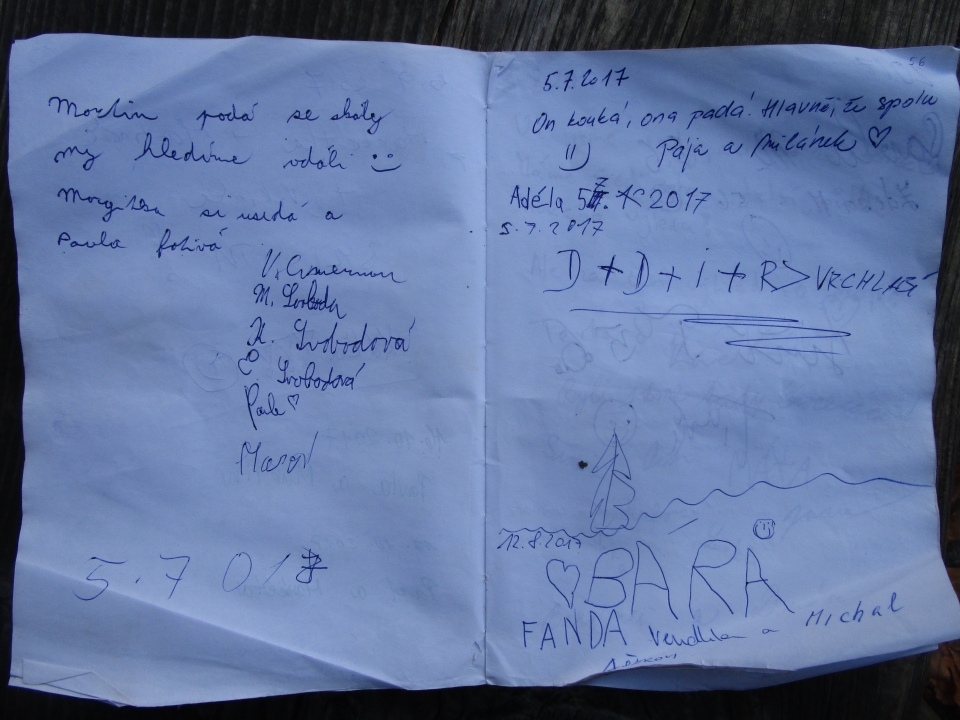 Martin podá se skály
my hledíme vdáli :)
si usidá a
Pavla fotivá
M. Svoboda
K. Svobodová
Svobodová
5.7 017
56
5.7.2017
On kouká, ona padá! Hlavně, že spolu
Pája a Milánek ♡
Adéla 5.7. 2017
5.7.2017
D + D + I + R > VRCHLABÍ
12.8.2017
♡ BARA
FANDA Vendula a Michal